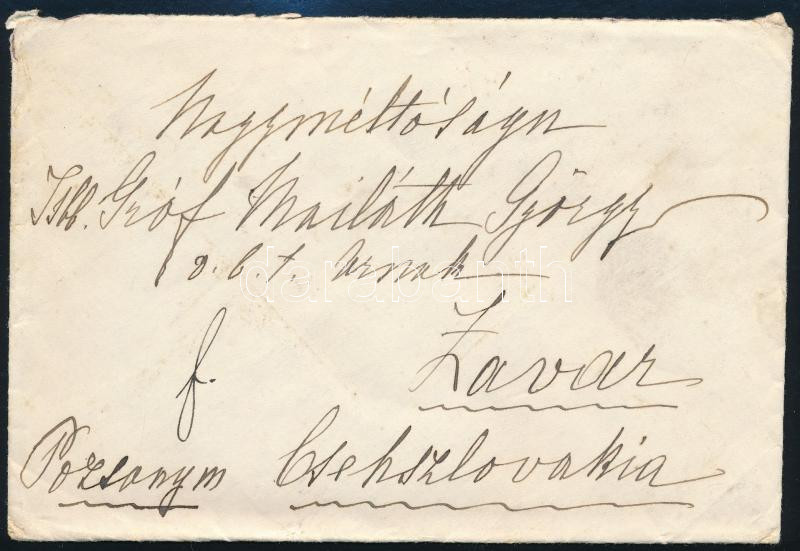 Nagyméltóságu
Gróf Mailáth György
v. b. t. Urnak
f.
Zavar
Pozsonym Csehszlovakia
darabanth